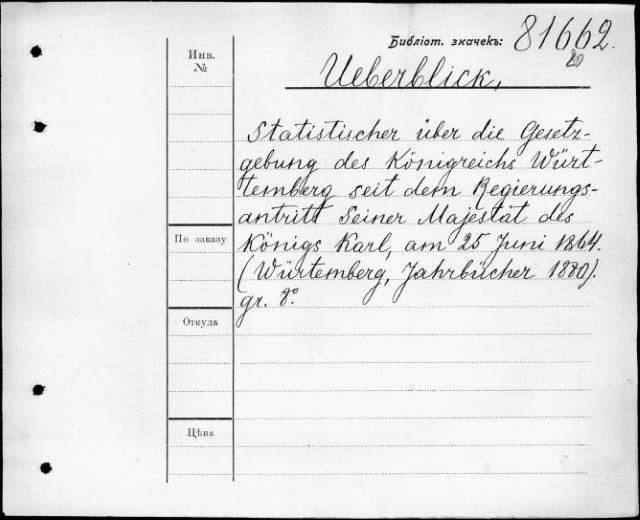 Библіот. значекъ: 81662.
20
Ueberblick,
Инв.
№
Statistischer über die Gesetz-
gebung des Königreichs Würt-
temberg seit dem Regierungs-
antritt Seiner Majestät des
По заказу
Königs Karl, am 25 Juni 1864.
(Würtemberg, Jahrbücher 1880).
gr. 8°.
Откуда
Цѣна